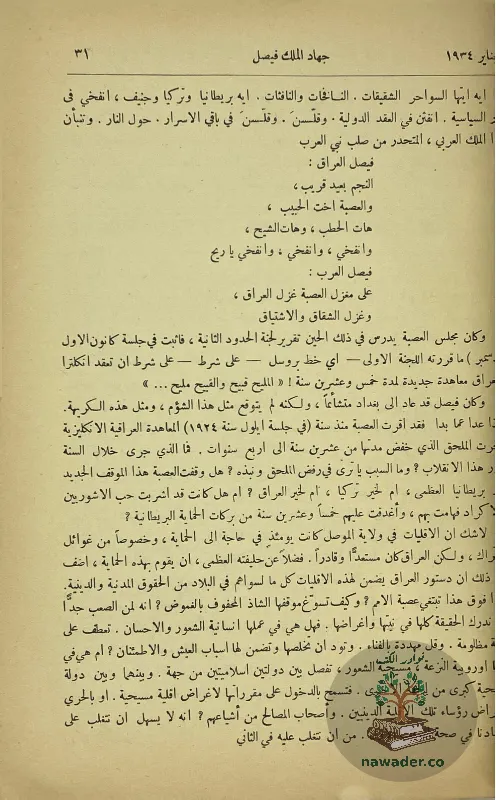 يناير ١٩٣٤ جهاد الملك فيصل ٣١
ايه ايتها السواحر الشقيقات . النافخات والنافثات . ايه بريطانيا وتركيا وجنيف ، انفخي فى
السياسية . انفثن في العقد الدولية . وقلّسن . وقلّسن في باقي الاسرار . حول النار . وتنبأن
الملك العربي ، المتحدر من صلب نبي العرب
فيصل العراق :
النجم بعيد قريب ،
والعصبة اخت الحبيب ،
هات الحطب ، وهات الشيح ،
وانفخي ، وانفخي ، وانفخي يا ريح
فيصل العرب :
على مغزل العصبة غزل العراق ،
وغزل الشقاق والاشتياق
وكان مجلس العصبة يدرس في ذلك الحين تقرير لجنة الحدود الثانية ، فاثبت في جلسة كانون الاول
ما قررته اللجنة الاولى — اي خط بروسل — على شرط — على شرط ان تعقد انكلترا
معاهدة جديدة لمدة خمس وعشرين سنة ! « المليح قبيح والقبيح مليح ... »
وكان فيصل قد عاد الى بغداد متشائماً ، ولكنه لم يتوقع مثل هذا الشؤم ، ومثل هذه الكريهة .
عدا عما بدا فقد اقرت العصبة منذ سنة (في جلسة ايلول سنة ١٩٢٤) المعاهدة العراقية الانكليزية
الملحق الذي خفض مدتها من عشرين سنة الى اربع سنوات . فما الذي جرى خلال السنة
هذا الانقلاب ؟ وما السبب يا ترى في رفض الملحق ونبذه ؟ هل وقفت العصبة هذا الموقف الجديد
بريطانيا العظمى ، ام لخير تركيا ، ام لخير العراق ؟ ام هل كانت قد اشربت حب الاشوريين
فهامت بهم ، وأغدفت عليهم خمساً وعشرين سنة من بركات الحماية البريطانية ؟
لاشك ان الاقليات في ولاية الموصل كانت يومئذٍ في حاجة الى الحماية ، وخصوصاً من غوائل
ولكن العراق كان مستعداً وقادراً . فضلاً عن حليفته العظمى ، ان يقوم بهذه الحماية ، اضف
ذلك ان دستور العراق يضمن لهذه الاقليات كل ما لسواهم في البلاد من الحقوق المدنية والدينية .
فوق هذا تبتغي عصبة الامم ؟ وكيف تسوّغ موقفها الشاذ المحفوف بالغموض ؟ انه لمن الصعب جداً
ندرك الحقيقة كلها في نيتها واغراضها . فهل هي في عملها انسانية الشعور والاحسان . تعطف على
مظلومة . وقل مهددة بالفناء . وتود ان تخلصها وتضمن لها اسباب العيش والاطمئنان ؟ ام هي في
اوروبية النزعة ، مسيحية الشعور ، تفصل بين دولتين اسلاميتين من جهة . وبينها وبين دولة
كبرى من فتسمح بالدخول على مقرراتها لاغراض اقلية مسيحية . او بالحري
رؤساء تلك الدينيين . وأصحاب المصالح من أشياعهم ؟ انه لا يسهل ان نتغلب على
في صحة . من ان نتغلب عليه في الثاني
نوادر الكتب
nawader.co